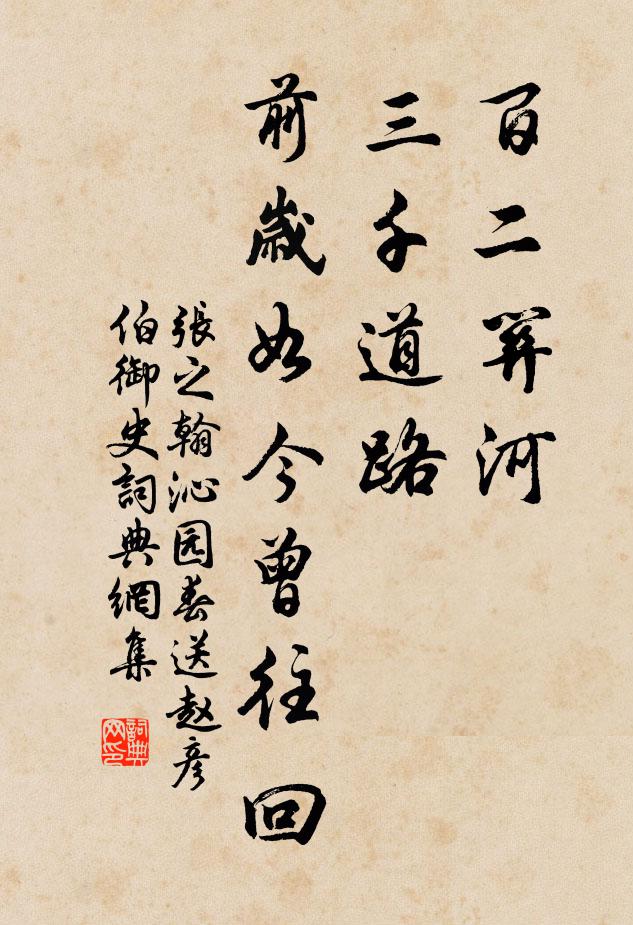 百二関河
三千道路
前歲如今曾往回
張之翰沁园春送赵彦
伯御史詞典網集
詞典网印